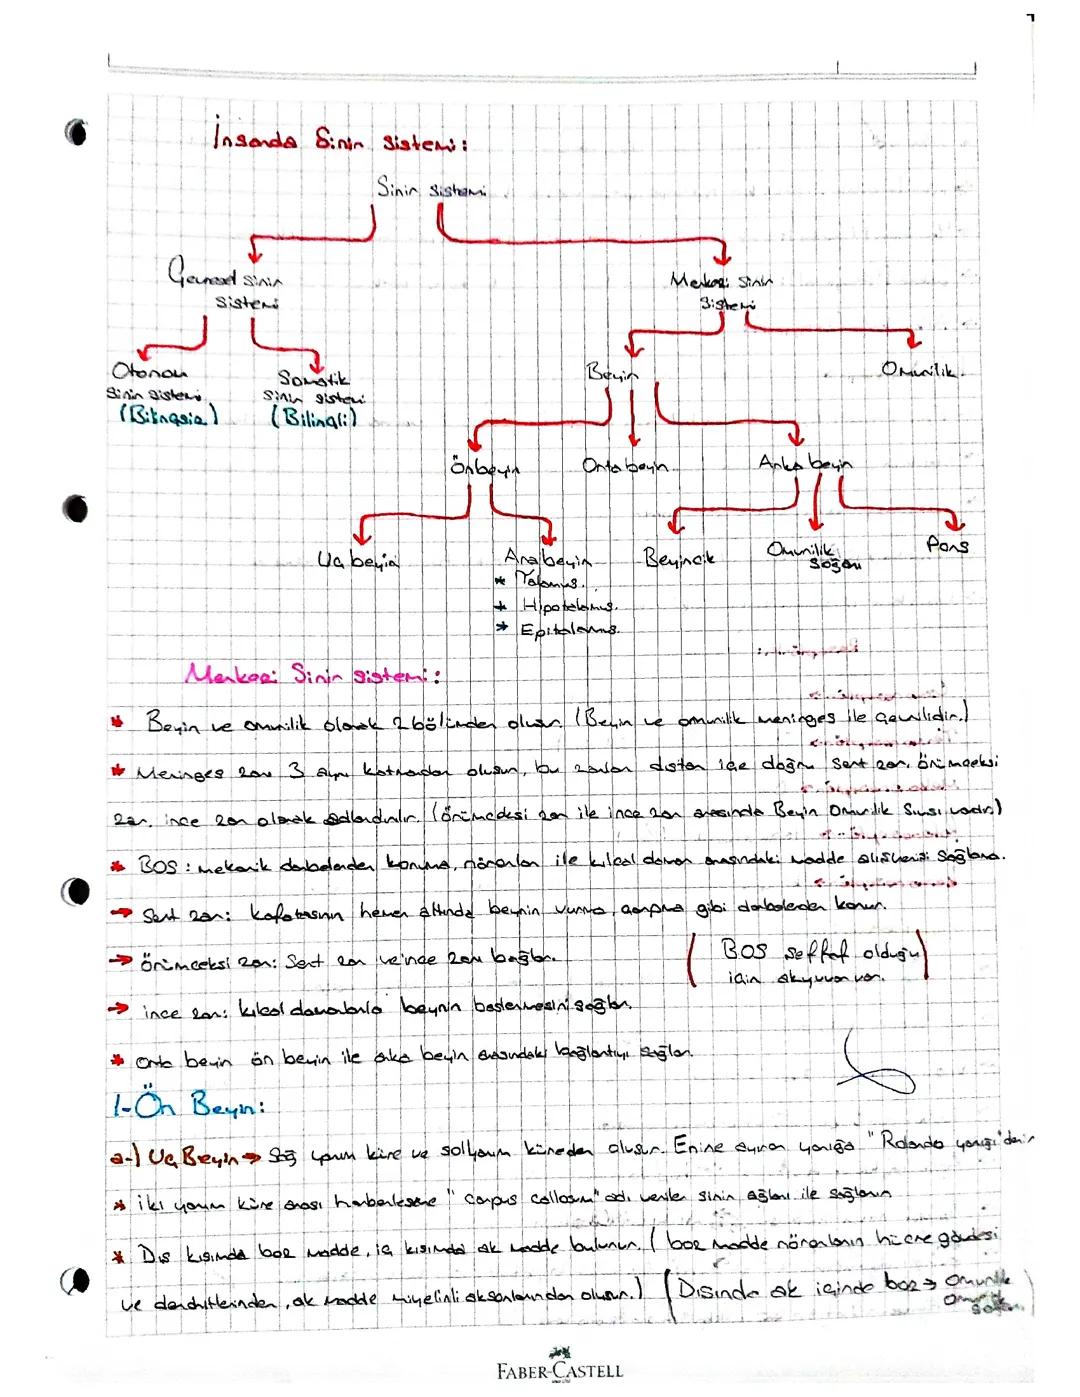 İnsanda Sinir Sistemi:
Sinir sistemi
Çevresel sinir sistemi
Merkezi Sinir Sistemi
Otonom sinir sistemi (Bilinçsiz)
Somatik sinir sistemi (Bilinçli)
Beyin
Omurilik
Ön beyin
Orta beyin
Arka beyin
Uç beyin
Ara beyin
Beyincik
Omurilik Soğanı
Pons
* Talamus.
* Hipotalamus.
* Epitalamus.
Merkezi Sinir Sistemi:
* Beyin ve omurilik olarak 2 bölümden oluşur (Beyin ve omurilik meninges ile çevrilidir.)
* Meninges zarı 3 ayrı katmandan oluşur, bu zarlar dıştan içe doğru sert zar, örümceksi
zar, ince zar olarak adlandırılır. (örümceksi zar ile ince zar arasında Beyin Omurilik Sıvısı vardır)
* BOS: mekanik darbelerden koruma, nöronlar ile kılcal damar arasındaki madde alışverişi sağlama.
→ Sert zar: kafatasının hemen altında beynin vurma, çarpma gibi darbelerden korur.
→ Örümceksi zar: Sert zar ve ince zarı bağlar.
(BOS şeffaf olduğu
için
→ ince zar: kılcal damarlarla beynin beslenmesini sağlar.
* Orta beyin ön beyin ile arka beyin arasındaki bağlantıyı sağlar.
1-Ön Beyin:
a-) Uç Beyin → Sağ yarım küre ve sol yarım küreden oluşur. Enine ayıran yarığa "Rolando yarığı" denir
* İki yarım küre arası haberleşme "corpus callosum" adı verilen sinir ağları ile sağlanır
* Dış kısımda boz madde, iç kısımda ak madde bulunur. (boz madde nöronların hücre gövdesi
ve dendritlerinden, ak madde miyelinli aksonlarından oluşur.) (Dışında ak içinde boz → Omurilik
Omurilik soğanı)
FABER-CASTELL